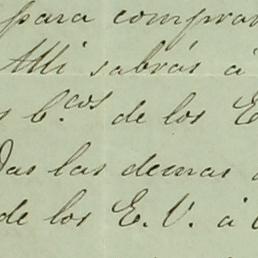 para comprar
Alli sabrás á
b.cos de los E
las demas
de los E. V. á